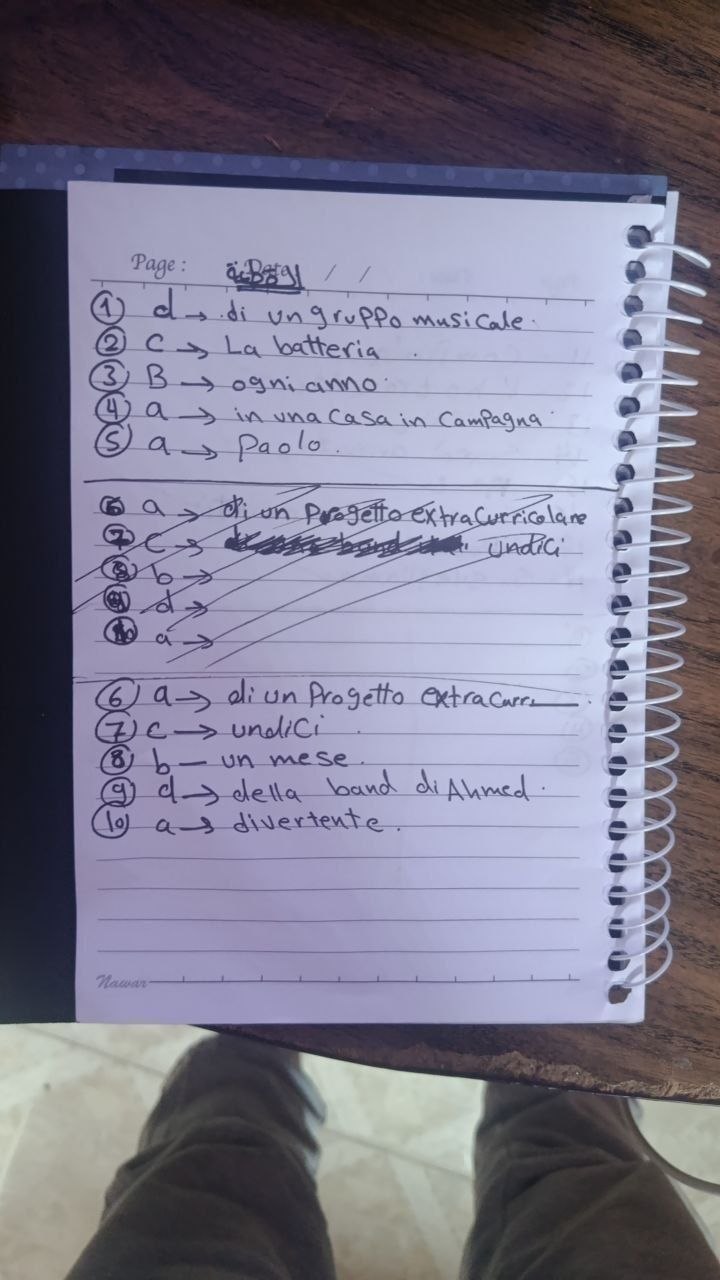 Page: Date / /
① d → di un gruppo musicale.
② c → La batteria.
③ B → ogni anno.
④ a → in una casa in campagna.
⑤ a → Paolo.
⑥ a → di un Progetto extracurricolare
⑦ c → undici
⑧ b →
⑨ d →
⑩ a →
⑥ a → di un Progetto extracurr
⑦ c → undici.
⑧ b — un mese.
⑨ d → della band di Ahmed.
⑩ a → divertente.
Nawar